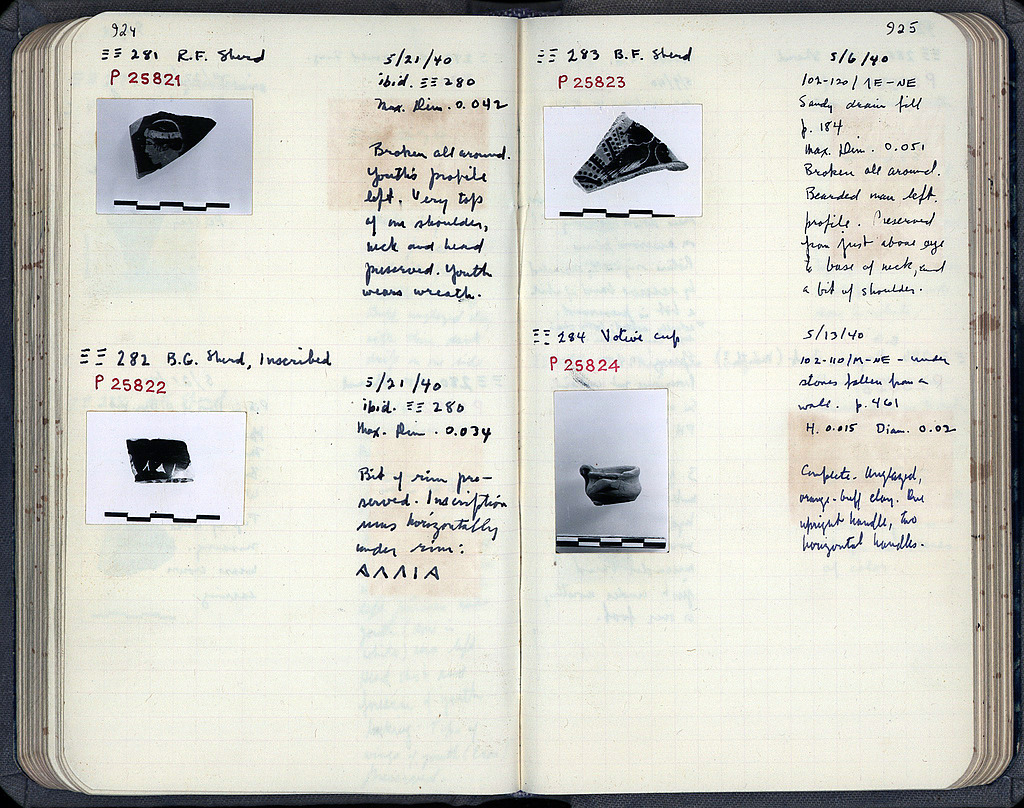 924
ΞΞ 281 R.F. Sherd
P 25821
5/21/40
ibid. ΞΞ 280
Max. Dim. 0.042
Broken all around.
Youth's profile
left. Very top
of one shoulder,
neck and head
preserved. Youth
wears wreath.
ΞΞ 282 B.G. Sherd, Inscribed
P 25822
5/21/40
ibid. ΞΞ 280
Max. Dim. 0.034
Bit of rim pre-
served. Inscription
runs horizontally
under rim:
ΑΛΛΙΑ
925
ΞΞ 283 B.F. Sherd
P 25823
5/6/40
102-120/ΛΕ-ΝΕ
Sandy drain fill
p. 184
Max. Dim. 0.051
Broken all around.
Bearded man left.
profile. Preserved
from just above eye
to base of neck, and
a bit of shoulder.
ΞΞ 284 Votive cup
P 25824
5/13/40
102-110/Μ-ΝΕ - under
stones fallen from a
wall. p. 461
H. 0.015 Diam. 0.02
Complete. Unglazed,
orange-buff clay. One
upright handle, two
horizontal handles.